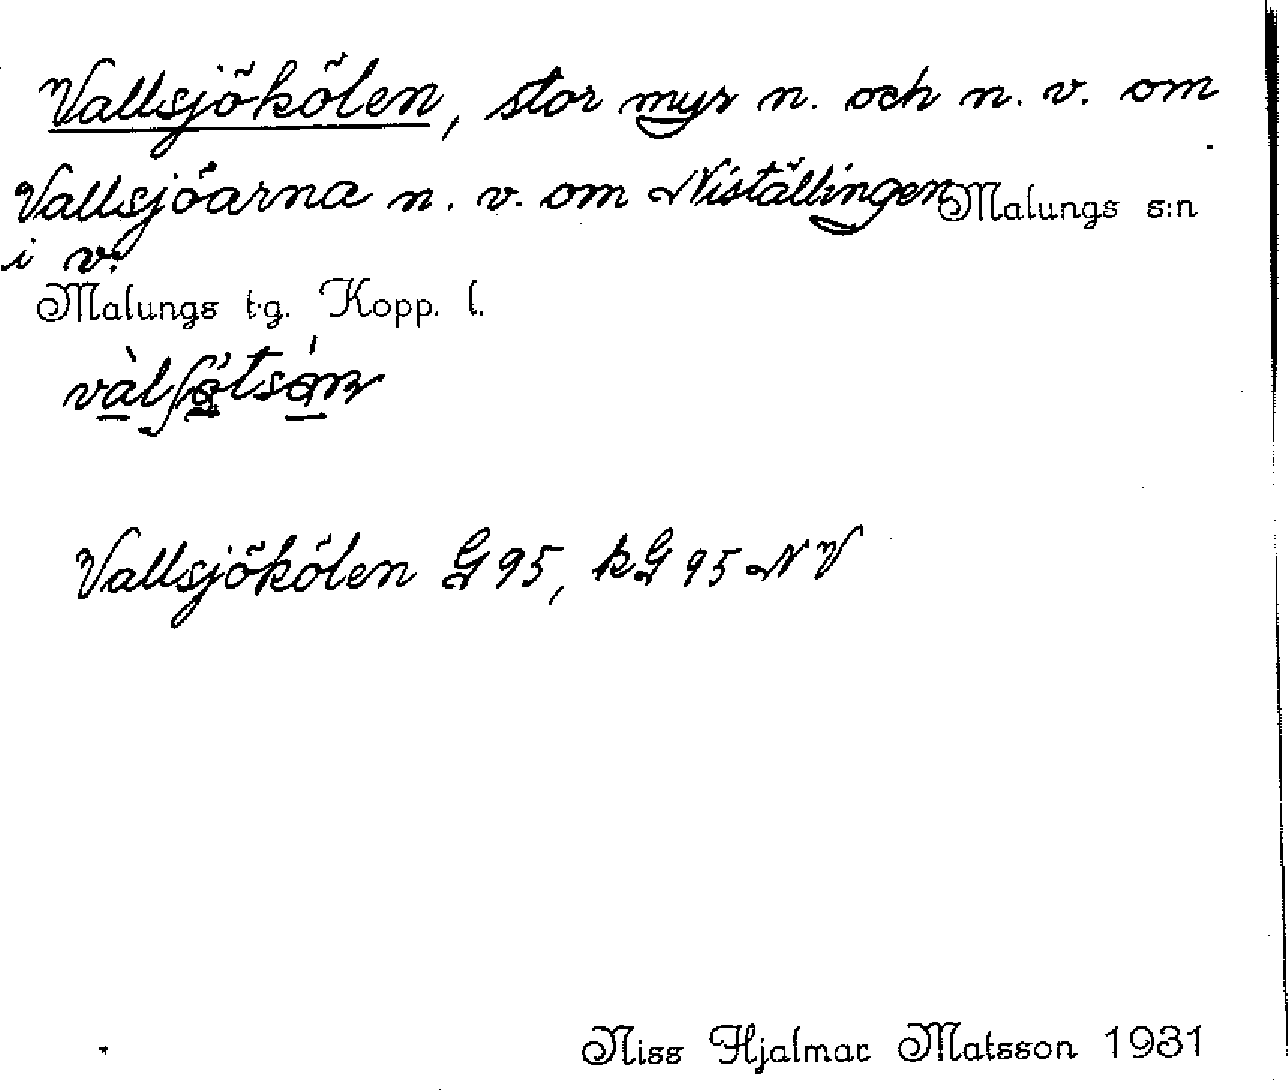 Vallsjökölen, stor myr n. och n. v. om
Vallsjöarna n. v. om Niställingen Malungs s:n
i v.
Malungs t.g. Kopp. l.
Vallsjökölen G 95, kG 95 NV
Niss Hjalmar Matsson 1931